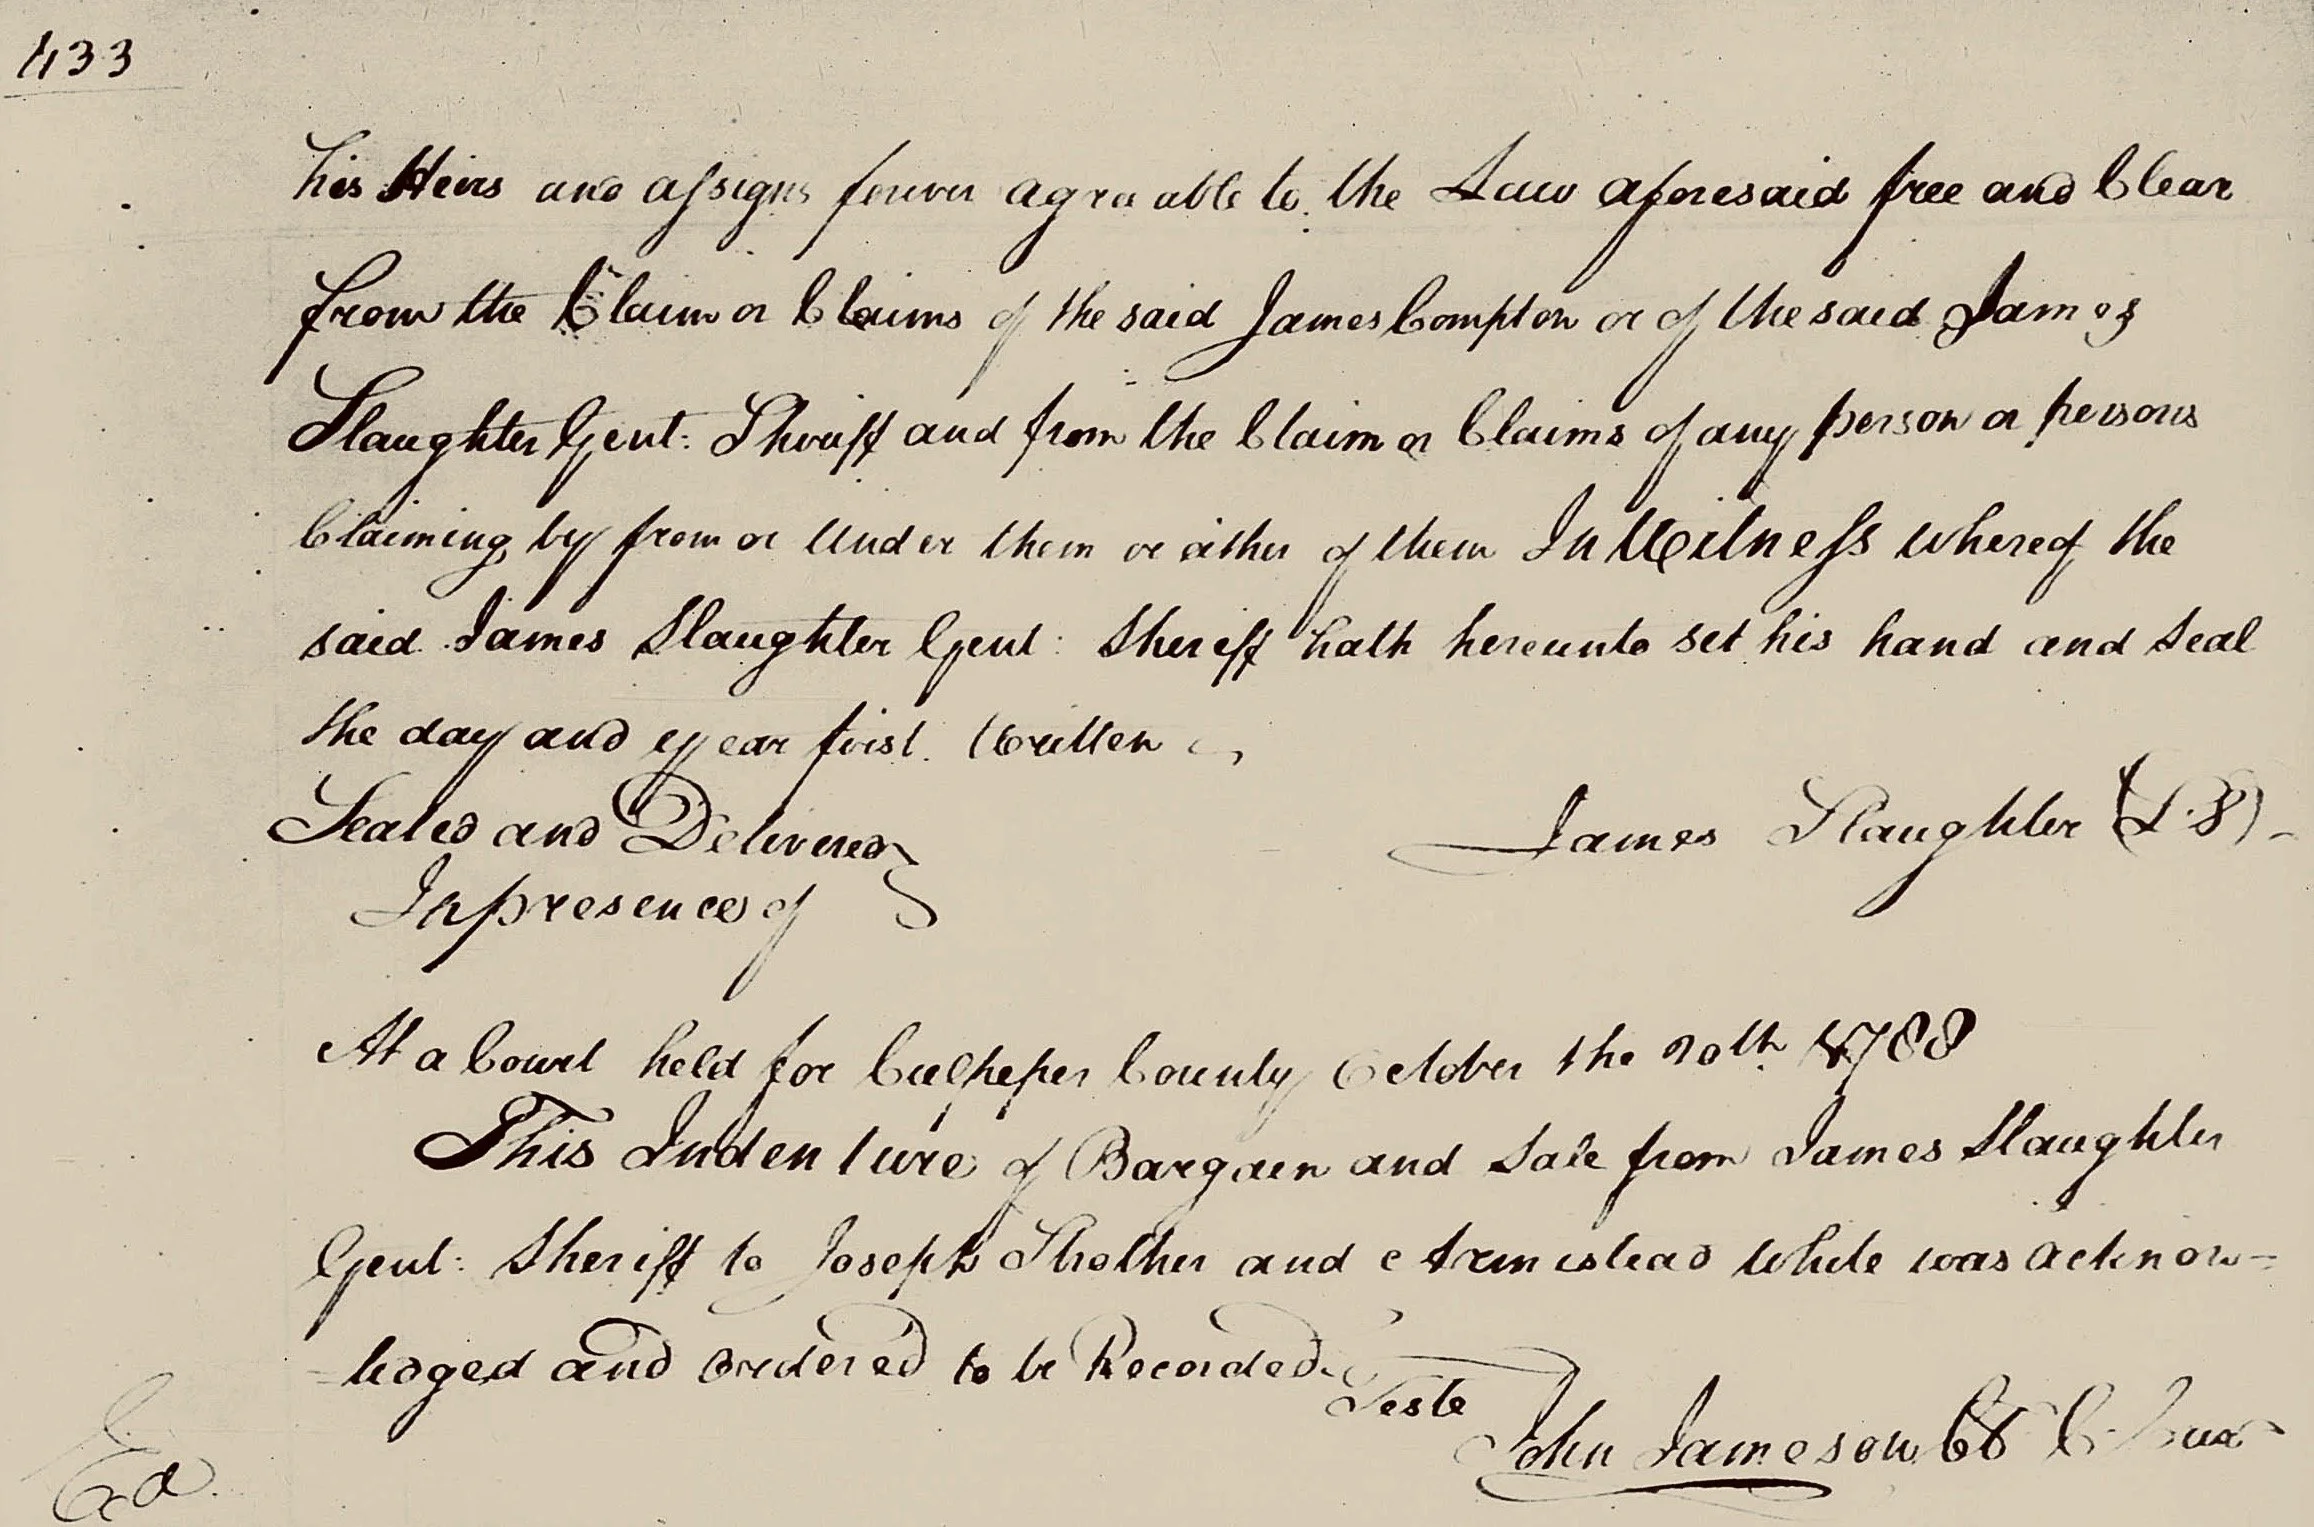 433
his Heirs and assigns forever agreeable to the Law aforesaid free and Clear
from the Claim or Claims of the said James Compton or of the said James
Slaughter Gent: Sheriff and from the Claim or Claims of any person or persons
Claiming by from or Under them or either of them In Witness whereof the
said James Slaughter Gent: Sheriff hath hereunto set his hand and Seal
the day and year first Written
Sealed and Delivered
In presence of
James Slaughter (L.S)
At a Court held for Culpeper County October the 20th 1788
This Indenture of Bargain and Sale from James Slaughter
Gent: Sheriff to Joseph Strother and Armistead White was acknow=
=ledged and ordered to be Recorded
Teste
John Jameson
Exd.